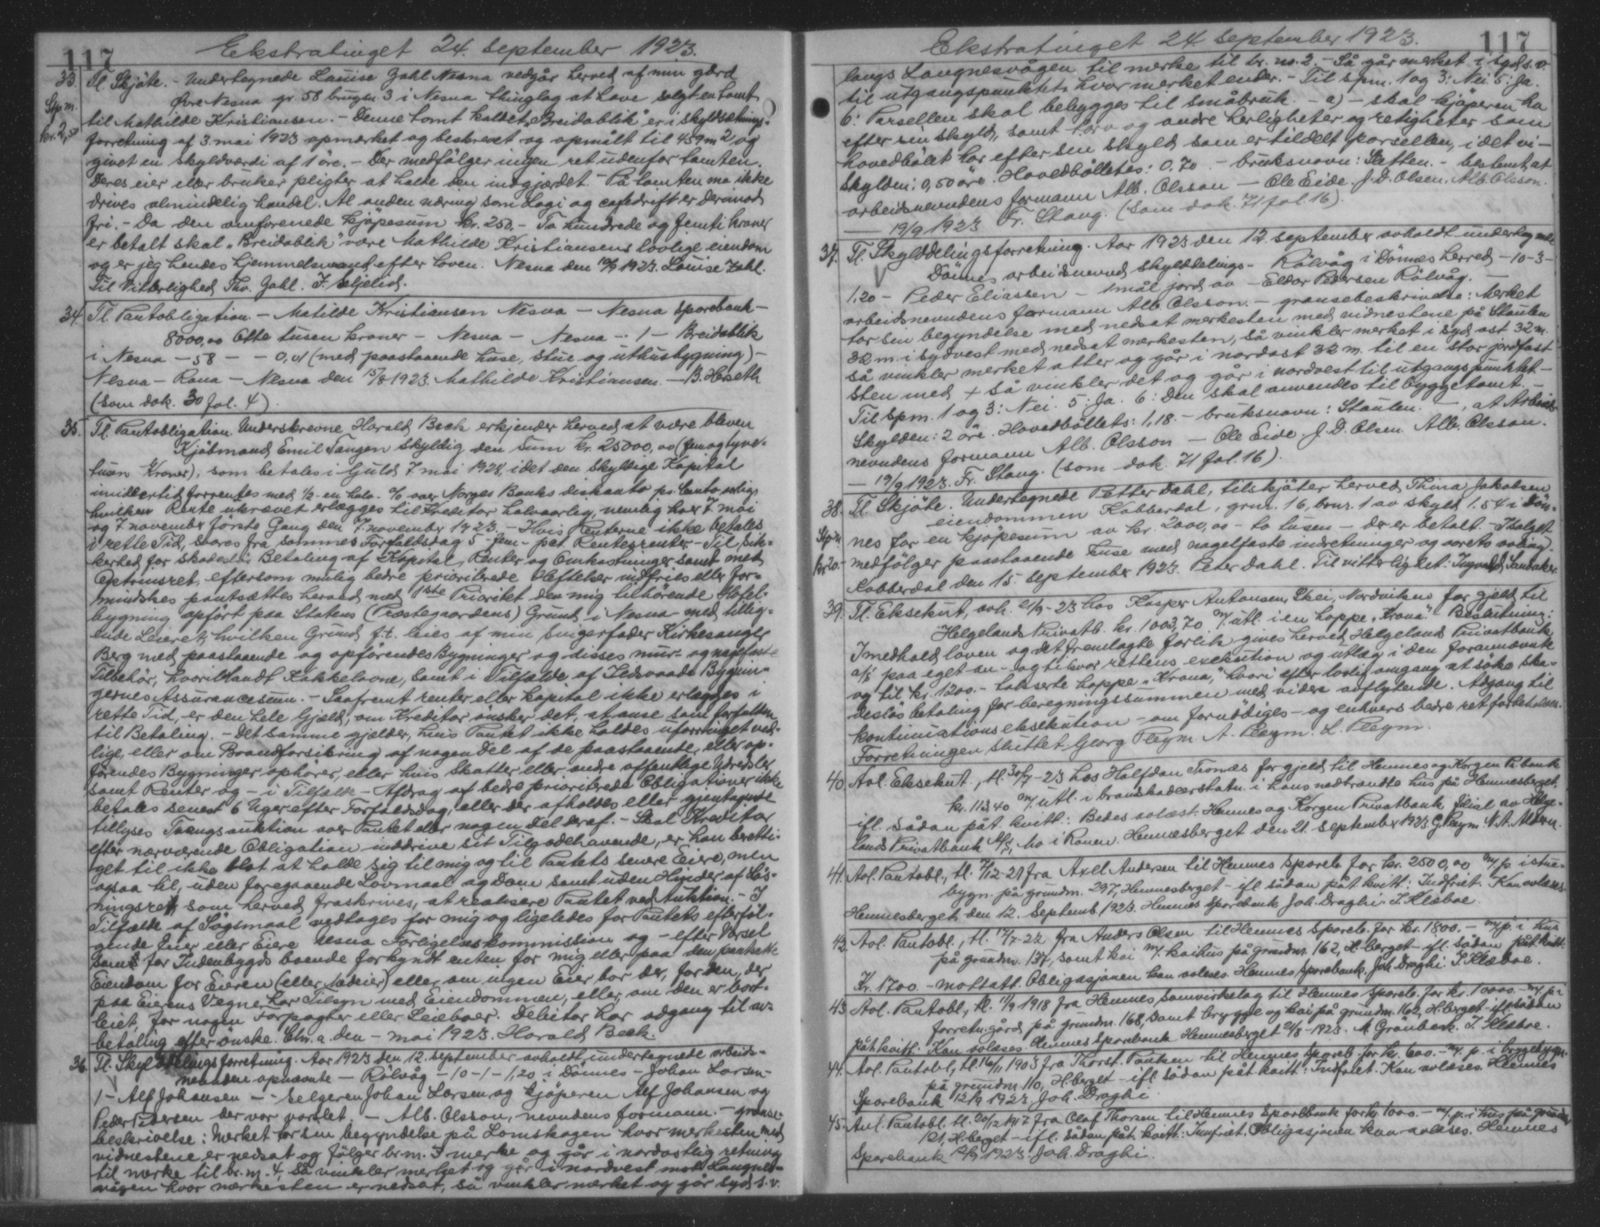 117 Ekstratinget 24. september 1923.
33. Tl. Skjöte. - Undertegnede Louise Zahl Nesna vedgår herved af min gård
Stpm. Övre Nesna gr. 58 bruksn. 3 i Nesna thinglag at have solgt en tomt
kr. 2,50 til Mathilde Kristiansen. - Denne tomt kaldet "Breidablik" er i skyldsætnings-
forretning af 3. mai 1923 opmerket og beskrevet og opmålt til 459 m2 og
givet en skyldverdi af 1 öre. - Der medfølger ingen ret udenfor tomten.
Deres eier eller bruker pligter at holde den indgjærdet - På tomten må ikke
drives almindelig handel. Al anden næring som Logi og cafedrift er derimod
fri. - Da den omforenede kjöpesum kr. 250,- To hundrede og femti kroner
er betalt skal "Breidablik" være Mathilde Kristiansens lovlige eiendom
og er jeg hendes hjemmelsmand efter loven. Nesna den 1923. Louise Zahl.
Til Vitterlighed Thv. Zahl. F. Seljelid.
34. Tl. Pantobligation - Matilde Kristiansen Nesna - Nesna Sparebank -
8000,00 Otte tusen kroner - Nesna - Nesna - 1 - Breidablik
i Nesna - 58 - - 0,01 (med paastaaende huse, stue og uthusbygning) -
Nesna - Rana - Nesna den 15/8 1923. Mathilde Kristiansen. - B. Herseth
(som dok. 30 fol. 4).
35. Tl. Pantobligation. Underskrevne Harald Bech erkjender herved at være bleven
Kjøbmand Emil Tangen skyldig den Sum kr. 25000,00 (femogtyve-
tusen Kroner), som betales i Guld 7 mai 1928, idet den skyldige Kapital
imidlertid forrentes med 1/2 - en halv - % over Norges Banks diskonto pr. anno,
hvilken Rente ukrævet erlægges til Kreditor halvaarlig, nemlig hver 7 mai
og 7 november første Gang den 7. november 1923. - Hvis Renterne ikke betales
i rette Tid, svares fra sammes Forfaldsdag 5 - fem - pct Rentesrenter - Til Sik-
kerhed for skadesløs Betaling af Kapital, Renter og Omkostninger samt med
Optrinsret, eftersom mulig bedre prioriterede Heftelser indfries eller for-
mindskes pantsættes herved med 1ste Prioritet den mig tilhørende Hotel-
bygning opført paa Statens (Præstegaardens) Grund i Nesna med tillig-
ende Løsøret, hvilken Grund f.t. leies af min Svigerfader Kirkesanger
Berg med paastaaende og opførendes Bygninger og disses mur- og nagelfaste
Tilbehør, hvoriblandt Kakkelovne, samt i Tilfælde af Ildsvaade Bygnin-
gernes Assurancesum. - Saafremt renter eller kapital ikke erlægges i
rette Tid, er den hele Gjæld, om Kreditor ønsker det, at anse som forfalden
til Betaling. - Det samme gjelder, hvis Pantet ikke holdes uforringet ved-
lige, eller om Brandforsikring af nogen Del af de paastaaende eller op-
førendes Bygninger ophører, eller hvis Skatter eller andre offentlige Udredsler
samt Renter og - i Tilfælde - Afdrag af bedre prioriterede Obligationer ikke
betales senest 6 Uger efter Forfaldsdag, eller der afholdes eller gjentagende
tillyses Tvangsauktion over Pantet eller nogen Del deraf. - Skal Kreditor
efter nærværende Obligation inddrive sit Tilgodehavende, er han beretti-
get til ikke blot at holde sig til mig og til Pantets senere Eiere, men
ogsaa til, uden foregaaende Lovmaal og Dom samt uden Hinder af Løs-
ningsret som herved fraskrives, at realisere Pantet ved Auktion. - I
Tilfælde af Søgsmaal vedtages for mig og ligeledes for Pantets efterføl-
gende Eier eller Eiere Nesna Forligelseskommission og - efter Varsel
som for Indenbygds boende forkyndt enten for mig eller paa den pantsatte
Eiendom for Eieren (eller Medeier) eller om ingen Eier bor der, for den, der
paa Eierens Vegne har Tilsyn med Eiendommen, eller om den er bort-
leiet, for nogen Forpagter eller Leieboer. Debitor har adgang til av-
betaling efter ønske. a. den - mai 1923. Harald Bech
36. Tl. Skylddelingsforretning. Aar 1923 den 12. september avholdt undertegnede arbeids-
nevndens opnævnte - Rölvåg - 10 - 1 - 1,20 i Dönnes - Johan Larsen -
1 - Alf Johansen - - selgeren Johan Larsen og kjöperen Alf Johansen og
Peder Pedersen var varslet. - Alb. Olsson, - nevndens formann. - grænse-
beskrivelse: Merket tar sin begyndelse på Lomskagen hvor merkesten med
vidnestene er nedsat og følger br.nr. 3 merke og går i nordostlig retning
til merke til br. nr. 4, så vinkler merket og går i nordvest mot Langnes-
vågen hvor merkesten er nedsat, så vinkler merket og går syd s.v.
117 Ekstratinget 24 september 1923.
langs Langnesvågen til merke til br. no. 2. - Så går merket i syd s.o.
til utgangspunktet hvor merket ender. - Til spm. 1 og 3: Nei. 5: Ja.
6: Parsellen skal bebygges til småbruk. - a) - skal kjöperen ha
efter sin skyld, samt torv og andre herligheter og rettigheter som
hovedbölet har efter sin skyld som er tildelt parsellen, idet vi -
Skylden: 0,50 öre. Hovedböllets: 0.70 - bruksnavn: Sletten. - bestemt at
arbeidsnevndens formann Alb. Olsson - Ole Eide. J. D. Olsen. Alb. Olsson.
- 19/9 1923 Fr. Stang. (som dok. 71 fol 16).
37. Tl. Skylddelingsforretning. Aar 1923 den 12 september avholdt undertegnede
Dönnes arbeidsnevnd skylddelings- Rölvåg i Dönnes herred - 10 - 3 -
1,20 - Peder Eliassen - 1 mål jord av - Eldor Pedersen Rölvåg. -
arbeidsnevndens formann Alb. Olsson. - grænsebeskrivelse: Merket
tar sin begyndelse med nedsat merkesten med vidnestene på Stauten
32 m. i sydvest med nedsat merkesten, så vinkler merket i syd ost 32 m.
så vinkler merket atter og går i nordost 32 m. til en stor jordfast
sten med + så vinkler det og går i nordvest til utgangspunktet -
Til spm. 1 og 3: Nei. 5: Ja. 6: Den skal anvendes til byggetomt. -
Skylden: 2 öre. Hovedböllets: 1,18 - bruksnavn: Stauten. -, at Arbeids-
nevndens formann Alb. Olsson - Ole Eide. J. D. Olsen. Alb. Olsson.
- 19/9 1923. Fr. Stang. (som dok. 71 fol. 16).
38. Tl. Skjöte. Undertegnede Petter Dahl, tilskjöter herved Thina Jakobsen
Stpm. eiendommen Kobberdal, grnr. 16, brnr. 1 av skyld 1.54 i Dön-
nes for en kjöpesum av kr. 2000,00 - to tusen - der er betalt - I salget
kr. 20. medfølger paastaaende huse med nagelfaste indretninger og
Kobberdal den 15 september 1923. Peter Dahl. Til vitterlighet: Ingvald Sandaker.
39. Tl. Eksekut. avh. 21/9 - 23 hos Kasper Antonsen Skei, Nordvikens for gjeld til
Helgelands Privatb. kr. 1003,70 m/ utl. i en hoppe "Krona". Beslutning:
I medhold loven og det fremlagte forlik gives herved Helgeland Privatbank
a/s paa eget an- og tilsvar rettens exekution og utlæg i den foranævnte
og til kr. 1200.- takserte hoppe "Krona", hvori efter lovlig omgang at söke ska-
deslös betaling for beregningssummen med videre avflytende. Adgang til
kontinuationseksekution - om fornödiges - og enhvers bedre ret forbeholdes.
Forretningen sluttet. Georg Pleym. A. Pleym. L. Pleym.
40. Avl. Eksekut., tl. 30/7 - 23 hos Halfdan Thomas for gjeld til Hemnes og Korgen Pr.bank
kr. 1123.40 m/ utl. i brandskadeerstatn. i hans nedbrændte hus på Hemnesberget.
- ifl. sådan påt. kvitt: Bedes avlæst. Hemnes og Korgen Privatbank, filial av Helge-
lands Privatbank A/s, Mo i Ranen. Hemnesberget den 21 september 1923 G. Pleym. N. A. Meden.
41. Avl. Pantobl., tl. 7/12 - 21 fra Axel Andersen til Hemnes Spareb. for kr. 2500,00 m/ p. i stue-
bygn. på grundnr. 297, Hemnesberget - ifl. sådan påt. kvitt: Indfriet. Kan avlæses.
Hemnesberget, den 12. Septemb. 1923. Hemnes Sparebank Joh. Draghi. I. Klæboe.
42. Avl. Pantobl., tl. 17/7 - 22 fra Anders Olsen til Hemnes Spareb. for kr. 1800.- m/p. i hus
på grundnr. 137, samt kai m/ kaihus på grundnr. 162, H.berget - ifl. sådan påt. kvitt:
Kr. 1700 - mottatt. Obligasjonen kan avlæses. Hemnes Sparebank. Joh. Draghi. I. Klæboe.
43. Avl. Pantobl., tl. 1918 fra Hemnes Samvirkelag til Hemnes Spareb. for kr. 10000.- m/p. i
forretn.gård på grundnr. 168, samt brygge og kai på grundnr. 162, H.berget - ifl. sådan
påt. kvitt: Kan avlæses. Hemnes Sparebank Hemnesberget 1923. M. Grönbech. I. Klæboe.
44. Avl. Pantobl., tl. 16/11 1903 fra Thorst. Paulsen til Hemnes Spareb. for kr. 600.- m/ p. i bryggebygn.
på grundnr. 110, H.berget - ifl. sådan påt. kvitt: Indfriet. Kan avlæses. Hemnes
Sparebank 12/9 1923. Joh. Draghi.
45. Avl. Pantobl. tl. 20/12 1917 fra Olaf Thorsen til Hemnes Sparebank for kr. 1000.- m/ p. i hus på grundnr.
H.berget - ifl. sådan påt. kvitt: Innfriet. Obligasjonen kan avlæses. Hemnes
Sparebank 12/9 1923. Joh. Draghi.